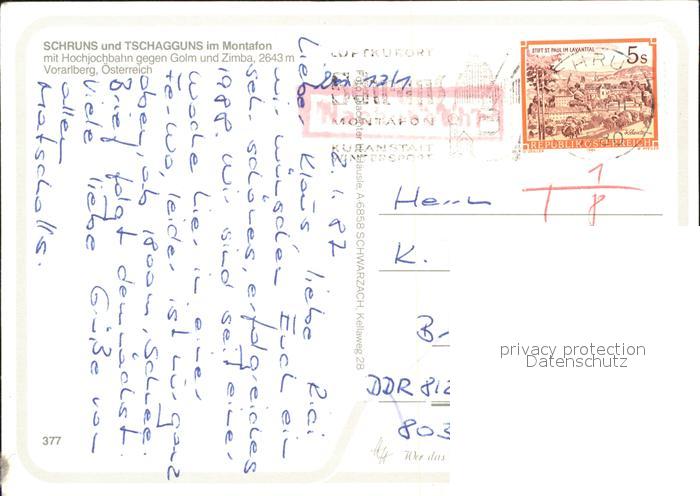 SCHRUNS und TSCHAGGUNS im Montafon
mit Hochjochbahn gegen Golm und Zimba, 2643 m
Vorarlberg, Österreich
LUFTKURORT
MONTAFON
KURANSTALT
WINTERSPORT
STIFT ST. PAUL IM LAVANTTAL
5s
REPUBLIK ÖSTERREICH
2.1.87
Lieber Klaus liebe
wir wünschen Euch ein
sel. schönes, erfolgreiches
1988. Wir sind seit einer
Woche hier in einer
leider ist nur ganz
oben, ab 1800m, Schnee.
Brief folgt demnächst.
Viele liebe Grüße von
allen
A-6858 SCHWARZACH, Kellaweg 28
1
8
Herrn
K.
B
DDR 812
803
377
privacy protection
Datenschutz